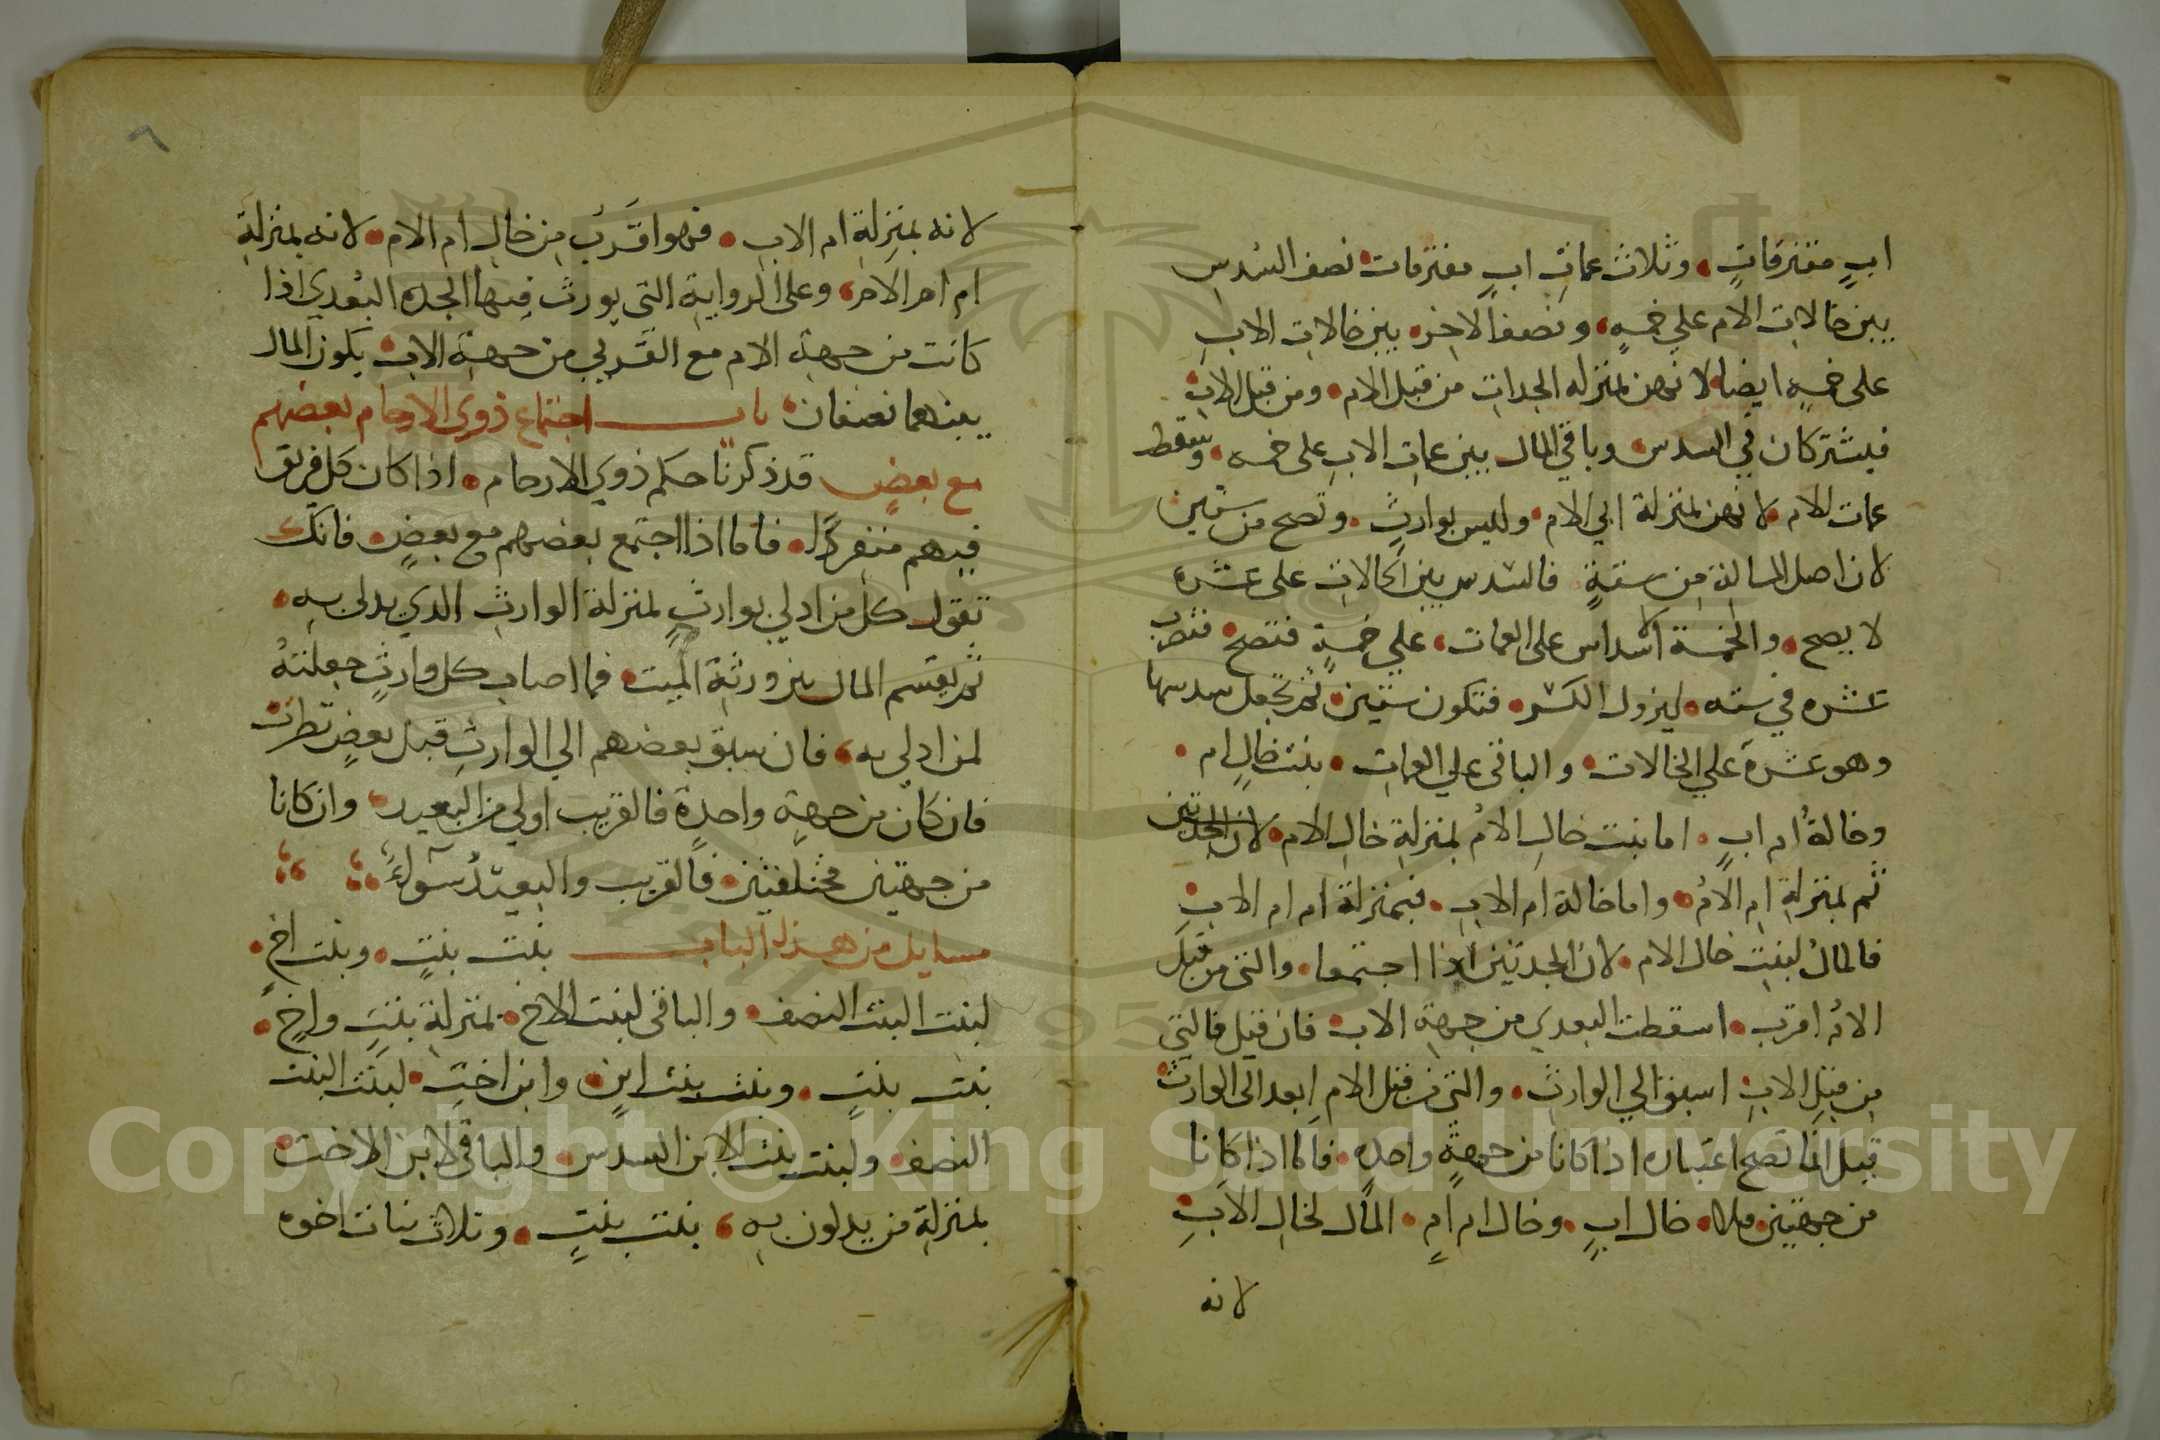 اب مفترقات وثلاث عمات اب مفترقات نصف السدس
بين خالات الام على خمسه ونصفه الاخر بين خالات الاب
على خمسه ايضا لانهن بمنزله الجدات من قبل الام ومن قبل الاب
فيشتركان في السدس وباقي المال بين عمات الاب على خمسه وسقط
عمات الام لانهن بمنزلة ابي الام وليس بوارث وتصح من ستين
لان اصل المسالة من ستة فالسدس بين الخالات على عشره
لا يصح والخمسة الاسداس على العمات على خمسة فتصح فتضرب
عشره في سته ليزول الكسر فتكون ستين ثم تجعل سدسها
وهو عشرة على الخالات والباقي على العمات بنت خال ام
وخالة ام اب اما بنت خال الام بمنزلة خال الام لان الجدتين
ثم بمنزلة ام الام واما خالة ام الاب فبمنزلة ام ام الاب
فالمال لبنت خال الام لان الجدتين اذا اجتمعا والتى من قبل
الام اقرب اسقطت البعدي من جهة الاب فان قيل فالتي
من قبل الاب اسبق الي الوارث والتى من قبل الام ابعد الى الوارث
قيل انما تصح اعتباره اذا كانا من جهة واحده فاما اذا كانا
من جهتين فلا خال اب وخال ام ام المال لخال الاب
لانه
٦
لانه بمنزلة ام الاب فهو اقرب من خال ام الام لانه بمنزلة
ام ام الام وعلى الرواية التى يورث فيها الجده البعدي اذا
كانت من جهة الام مع القربي من جهة الاب يكون المال
بينهما نصفان باب اجتماع ذوي الارحام بعضهم
مع بعض قد ذكرنا حكم ذوي الارحام اذا كان كل فريق
فيهم منفردا فاما اذا اجتمع بعضهم مع بعض فانك
تقول كل من ادلي بوارث بمنزلة الوارث الذي يدلي به
ثم يقسم المال بين ورثة الميت فما اصاب كل وارث جعلته
لمن ادلي به فان سبق بعضهم الي الوارث قبل بعض نظرت
فان كان من جهة واحدة فالقريب اولي من البعيد وان كانا
من جهتين مختلفتين فالقريب والبعيد سواء
مسايل من هذا الباب بنت بنت وبنت اخ
لبنت البنت النصف والباقي لبنت الاخ بمنزلة بنت واخ
بنت بنت وبنت بنت ابن وابن اخت لبنت البنت
النصف ولبنت بنت الابن السدس والباقي لابن الاخت
بمنزلة من يدلون به بنت بنت وثلاث بنات اخوه